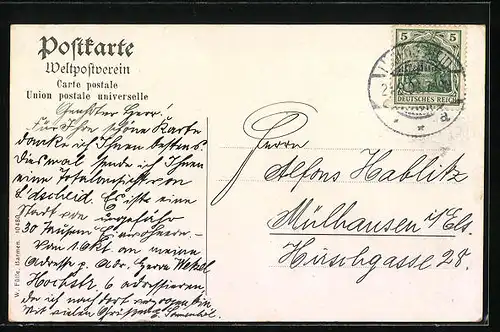 Postkarte
Weltpostverein
Carte postale
Union postale universelle
5 5
DEUTSCHES REICH
Geehrter Herr!
Für Ihre schöne Karte
danke ich Ihnen bestens
Diesmal sende ich Ihnen
eine Totalansicht von
L'dscheid. Es ist eine
Stadt von ungefähr
30 Tausen. Einwohnern.-
Vom 1 Okt. an meine
Adresse p. Adr. Herrn
Hochstr. 6 adressieren,
da ich nach dort verzogen bin
Mit vielen Grüssen
Herrn
Alfons Hablitz
Mülhausen i/Els.
Hirschgasse 28.
W. Fülle, Barmen. 10480